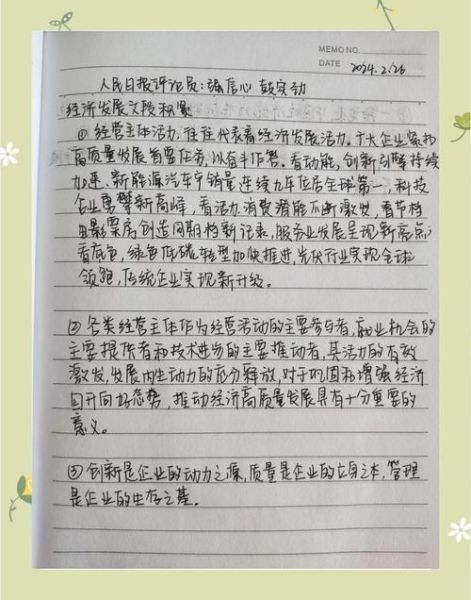 MEMO NO.
DATE 2024.2.26
人民日报评论员:强信心 鼓实劲
经济发展文段积累
① 经营主体活力,往往代表着经济发展活力。广大企业紧扣
高质量发展首要任务,以奋斗作答。看动能,创新引擎持续
加速,新能源汽车产销量连续九年位居全球第一,科技
企业勇攀新高峰,看活力,消费潜能不断激发,春节档
电影票房创造同期档新记录,服务业发展呈现新亮点;
看底色,绿色低碳转型加快推进,光伏行业实现全球
领跑,传统企业实现新升级。
② 各类经营主体作为经营活动的主要参与者,就业机会的
主要提供者和技术进步的主要推动者,其活力的有效
激发,发展内生动力的充分释放,对于巩固和增强经济
回升向好态势,推动经济高质量发展具有十分重要的
意义。
③ 创新是企业的动力之源,质量是企业的立身之本,管理
是企业的生存之基。